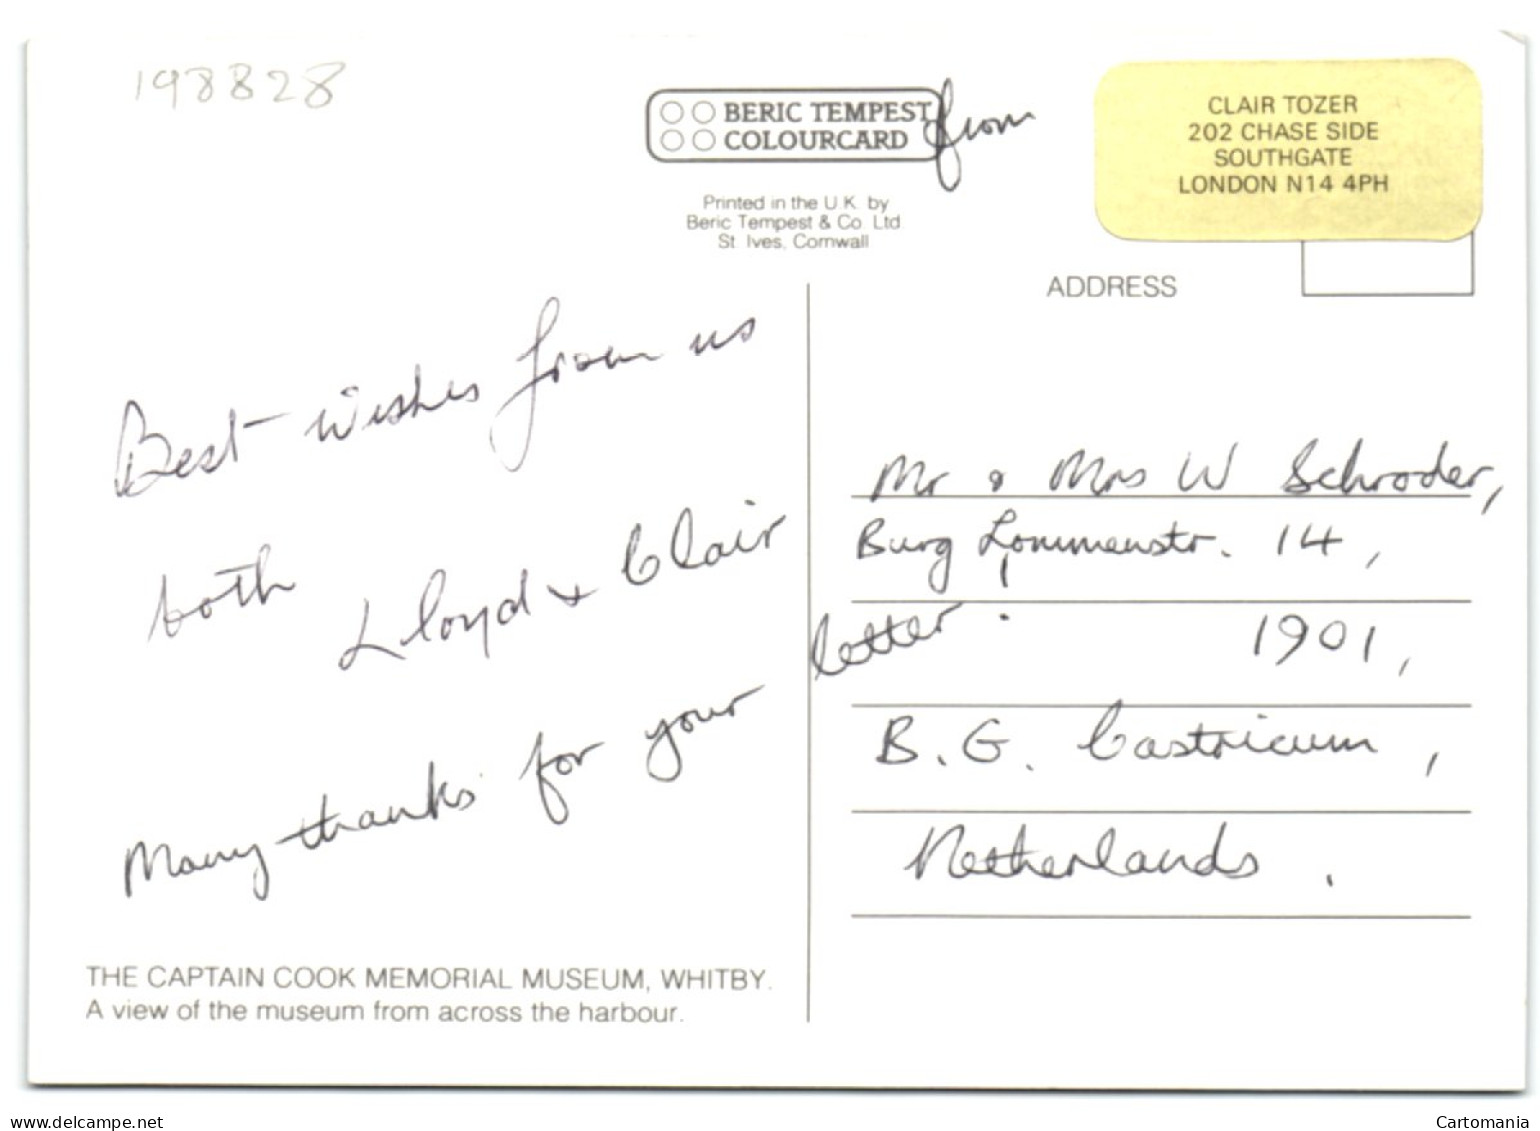 198828
BERIC TEMPEST
COLOURCARD
from
CLAIR TOZER
202 CHASE SIDE
SOUTHGATE
LONDON N14 4PH
Printed in the U.K. by
Beric Tempest & Co. Ltd
St. Ives, Cornwall
ADDRESS
Best wishes from us
both Lloyd & Clair
Many thanks for your letter!
Mr & Mrs W Schroder,
Burg Lommenstr. 14,
1901,
B. G. Castricum,
Netherlands.
THE CAPTAIN COOK MEMORIAL MUSEUM, WHITBY.
A view of the museum from across the harbour.
www.delcampe.net
Cartomania